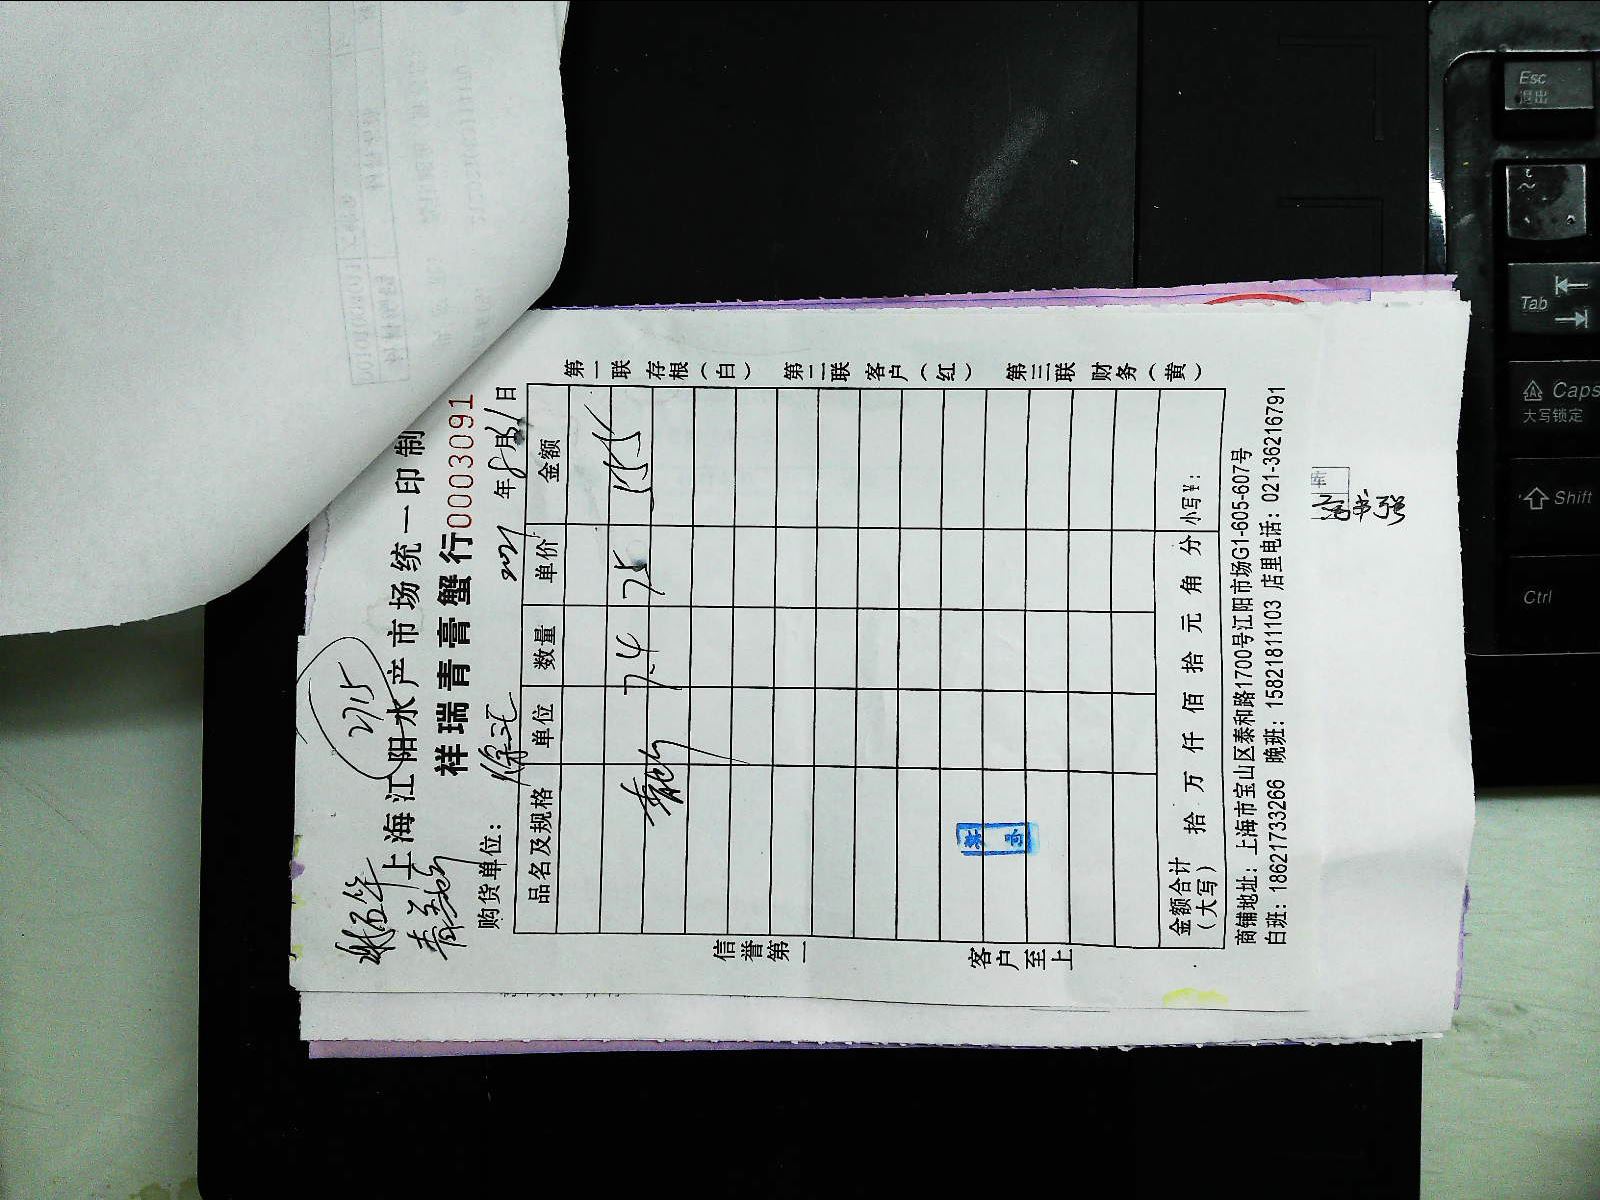 2715
上海江阳水产市场统一印制
祥瑞青膏蟹行0003091
购货单位: 徐汇 2021年8月31日
品名及规格 单位 数量 单价 金额
7.4 75 555
信誉第一
客户至上
第一联 存根(白) 第二联 客户(红) 第三联 财务(黄)
金额合计(大写) 拾 万 仟 佰 拾 元 角 分 小写¥:
商铺地址: 上海市宝山区泰和路1700号江阳市场G1-605-607号
白班: 18621733266 晚班: 15821811103 店里电话: 021-36216791
Esc
退出
~
Tab
Caps
大写锁定
Shift
Ctrl